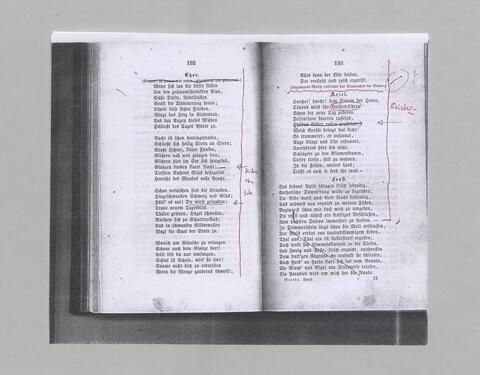 192
Chor.
(Einzeln, zu zweien und vielen, abwechselnd und gesammelt.)
Wenn sich lau die Lüfte füllen
Um den grünumschränkten Plan,
Süße Düfte, Nebelhüllen
Senkt die Dämmerung heran;
Lispelt leise süßen Frieden,
Wiegt das Herz in Kindesruh,
Und den Augen dieses Müden
Schließt des Tages Pforte zu.
Nacht ist schon hereingesunken,
Schließt sich heilig Stern an Stern;
Große Lichter, kleine Funken
Glitzern nah und glänzen fern;
Glitzern hier im See sich spiegelnd,
Glänzen droben klarer Nacht;
Tiefsten Ruhens Glück besiegelnd
Herrscht des Mondes volle Pracht.
Schon verloschen sind die Stunden,
Hingeschwunden Schmerz und Glück;
Fühl' es vor! Du wirst gesunden;
Traue neuem Tagesblick.
Thäler grünen, Hügel schwellen,
Buschen sich zu Schattenruh;
Und in schwanken Silberwellen
Wogt die Saat der Ernte zu.
Wunsch um Wünsche zu erlangen
Schaue nach dem Glanze dort!
Leise bist du nur umfangen,
Schlaf ist Schale, wirf sie fort!
Säume nicht dich zu erdreisten
Wenn die Menge zaudernd schweift;
193
Alles kann der Edle leisten,
Der versteht und rasch ergreift.
(Ungeheures Getöse verkündet das Herannahen der Sonne.)
Ariel.
Horchet! horcht! dem Sturm der Horen,
Tönend wird für Geistes-Ohren
Schon der neue Tag geboren.
Felsenthore knarren rasselnd,
Phöbus Räder rollen prasselnd,
Welch Getöse bringt das Licht!
Es trommetet, es posaunet,
Auge blinzt und Ohr erstaunet,
Unerhörtes hört sich nicht.
Schlüpfet zu den Blumenkronen,
Tiefer tiefer, still zu wohnen,
In die Felsen, unters Laub;
Trifft es euch so seyd ihr taub.
Faust.
Des Lebens Pulse schlagen frisch lebendig,
Aetherische Dämmerung milde zu begrüßen;
Du Erde warst auch diese Nacht beständig,
Und athmest neu erquickt zu meinen Füßen,
Beginnest schon mit Lust mich zu umgeben,
Du regst und rührst ein kräftiges Beschließen,
Zum höchsten Daseyn immerfort zu streben. —
In Dämmerschein liegt schon die Welt erschlossen,
Der Wald ertönt von tausendstimmigem Leben,
Thal aus, Thal ein ist Nebelstreif ergossen,
Doch senkt sich Himmelsklarheit in die Tiefen,
Und Zweig und Aeste, frisch erquickt, entsprossen
Dem duft'gen Abgrund wo versenkt sie schliefen;
Auch Farb' an Farbe klärt sich los vom Grunde,
Wo Blum' und Blatt von Zitterperle triefen,
Ein Paradies wird um mich her die Runde.
Goethe, Faust. 13